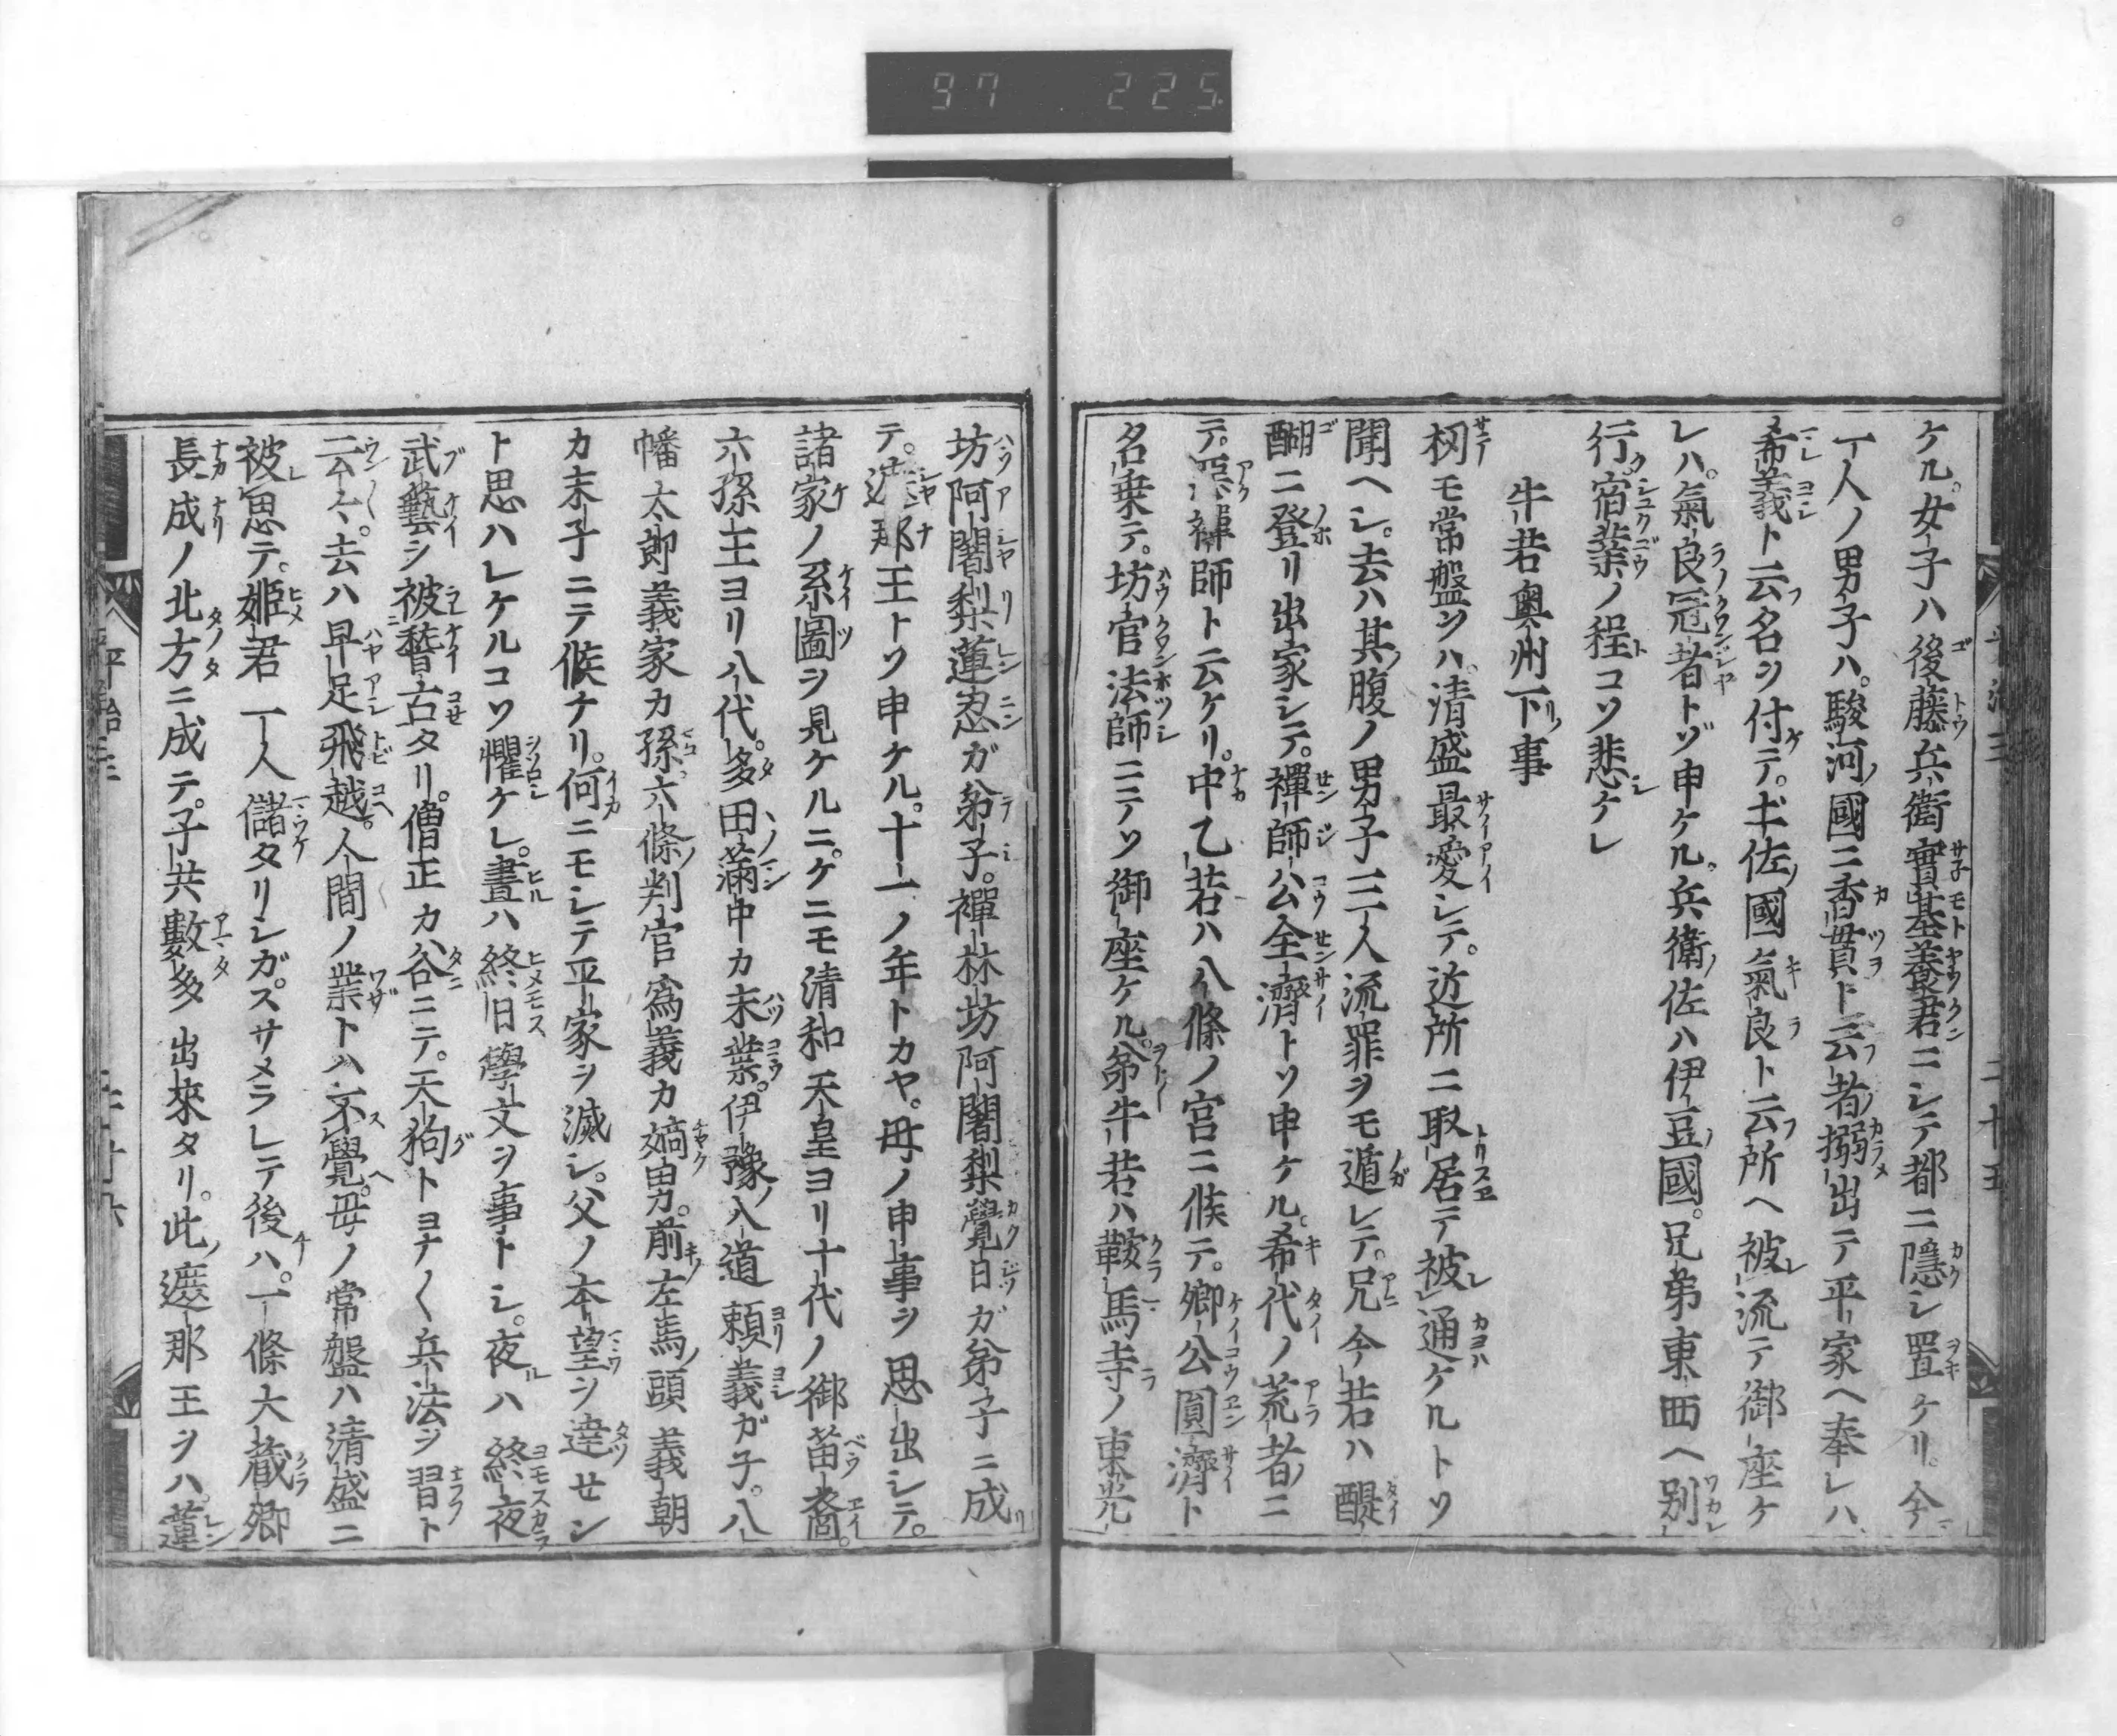 97 225
ケル。女子ハ後藤兵衛實基養君ニシテ都ニ隱シ置ケリ。今
一人ノ男子ハ。駿河國ニ香貫ト云者搦出テ平家ヘ奉レハ
希義ト云名ヲ付テ。土佐國氣良ト云所ヘ被流テ御座ケ
レハ。氣良冠者トゾ申ケル。兵衛佐ハ伊豆國。兄弟東西ヘ別
行。宿業ノ程コソ悲ケレ
牛若奥州下事
扨モ常盤ヲハ。清盛最愛シテ。近所ニ取居テ被通ケルトソ
聞ヘシ。去ハ其腹ノ男子三人流罪ヲモ遁レテ。兄今若ハ醍
醐ニ登リ出家シテ。禪師公全濟トソ申ケル。希代ノ荒者ニ
テ。惡禪師ト云ケリ。中乙若ハ八條ノ宮ニ候テ。卿公圓濟ト
名乗テ。坊官法師ニテソ御座ケル。弟牛若ハ鞍馬寺ノ東光
坊阿闍梨蓮忍ガ弟子。禪林坊阿闍梨覺日ガ弟子ニ成
テ。遮那王トソ申ケル。十一ノ年トカヤ。母ノ申事ヲ思出シテ。
諸家ノ系圖ヲ見ケルニ。ケニモ清和天皇ヨリ十代ノ御苗裔。
六孫王ヨリ八代。多田滿中カ末葉。伊豫入道頼義ガ子。八
幡太郎義家カ孫。六條判官爲義カ嫡男。前左馬頭義朝
カ末子ニテ候ナリ。何ニモシテ平家ヲ滅シ。父ノ本望ヲ達せン
ト思ハレケルコソ懼ケレ。晝ハ終日學文ヲ事トシ。夜ハ終夜
武藝ヲ被稽古タリ。僧正カ谷ニテ。天狗トヨナ〱兵法ヲ習ト
云々。去ハ早足飛越。人間ノ業トハ不覺。母ノ常盤ハ清盛ニ
被思テ。姫君一人儲タリシガ。スサメラレテ後ハ。一條大蔵卿
長成ノ北方ニ成テ。子共數多出來タリ。此遮那王ヲハ。蓮
平治三